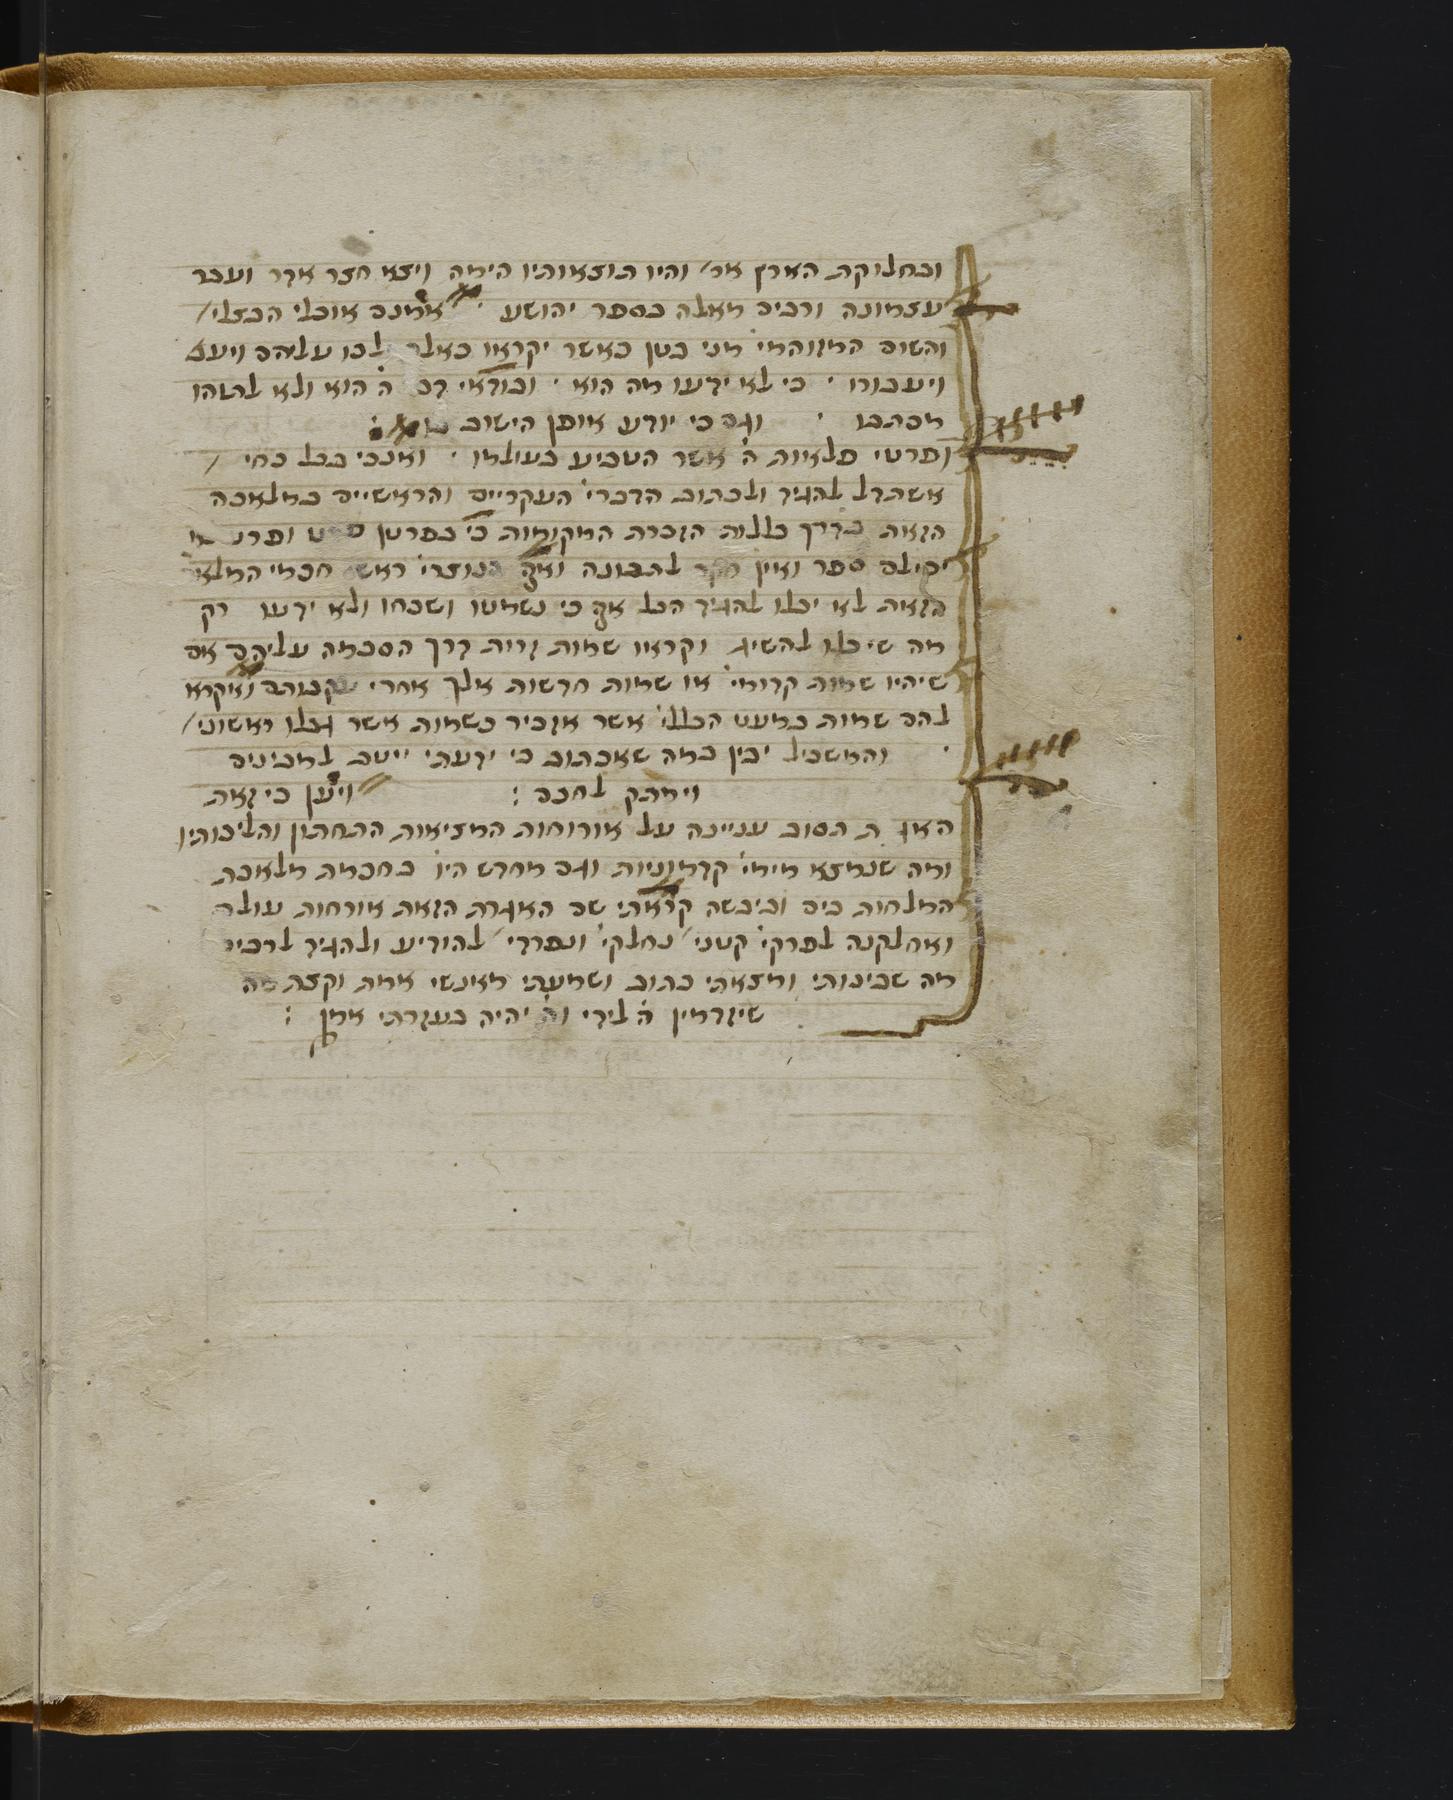 ובחלוקת הארץ אמ׳ והיו תוצאותיו הימה ויצא חצר אדר ועבר
עצמונה ורבים מאלה בספר יהושע · אמנם אוכלי הבצלי׳
והשום המזוהמי׳ מני בטן כאשר יקראו כאלה לבו עליהם ויעב
ויעבורו · כי לא ידעו מה הוא · ובודאי דבר ה׳ הוא ולא להטהו
מכתבו · וגם כי יודע אופן הישוב
ופרטי פלאות ה׳ אשר הטביע בעולמו · ואנכי בכל כחי
אשתדל להגיד ולכתוב הדברי׳ העקריים והראשיים במלאכה
הזאת בדרך כללות הזכרת המקומות כי בפרטן
יכילם ספר ואין חקר לתבונה ואף הנוצרי׳ ראשי חכמי המלאכה
הזאת לא יכלו להגיד הכל אף כי נשמטו ושכחו ולא ידעו רק
מה שיכלו להשיג וקראו שמות זרות דרך הסכמה עליהם אם
שיהיו שמות קדומי׳ או שמות חדשות אלך אחרי עקבותם ואקרא
להם שמות במעט הכללי׳ אשר אזכיר כשמות אשר גבלו ראשוני׳
והמשכיל יבין במה שאכתוב כי ידעתי ייטב למבינים
וימתק לחכם : ויען כי זאת
האגרת תסוב עניינה על אורחות המציאות התחתון והליכותיו
ומה שנמצא מימי׳ קדמוניות וגם מחדש היו בחכמת מלאכת
המלחות בים וביבשה קראתי שם האגרת הזאת אורחות עולם
ואחלקנה לפרקי׳ קטני׳ נחלקי׳ ונפרדי׳ להודיע ולהגיד לרבים
מה שבינותי ומצאתי כתוב ושמעתי מאנשי אמת וקצת מה
שיזדמין ה׳ לידי וה׳ יהיה בעזרתי אמן :